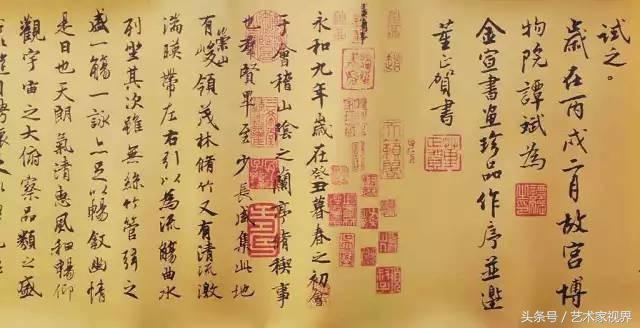 試之。
歲在丙戌二月故宮博
物院譚斌為
金宣書畫珍品作序並邀
董正賀書
永和九年歲在癸丑暮春之初會
于會稽山陰之蘭亭脩稧事
也群賢畢至少長咸集此地
有崇山峻領茂林脩竹又有清流激
湍暎帶左右引以為流觴曲水
列坐其次雖無絲竹管弦之
盛一觴一詠亦足以暢敘幽情
是日也天朗氣清惠風和暢仰
觀宇宙之大俯察品類之盛
头条号／艺术家视界